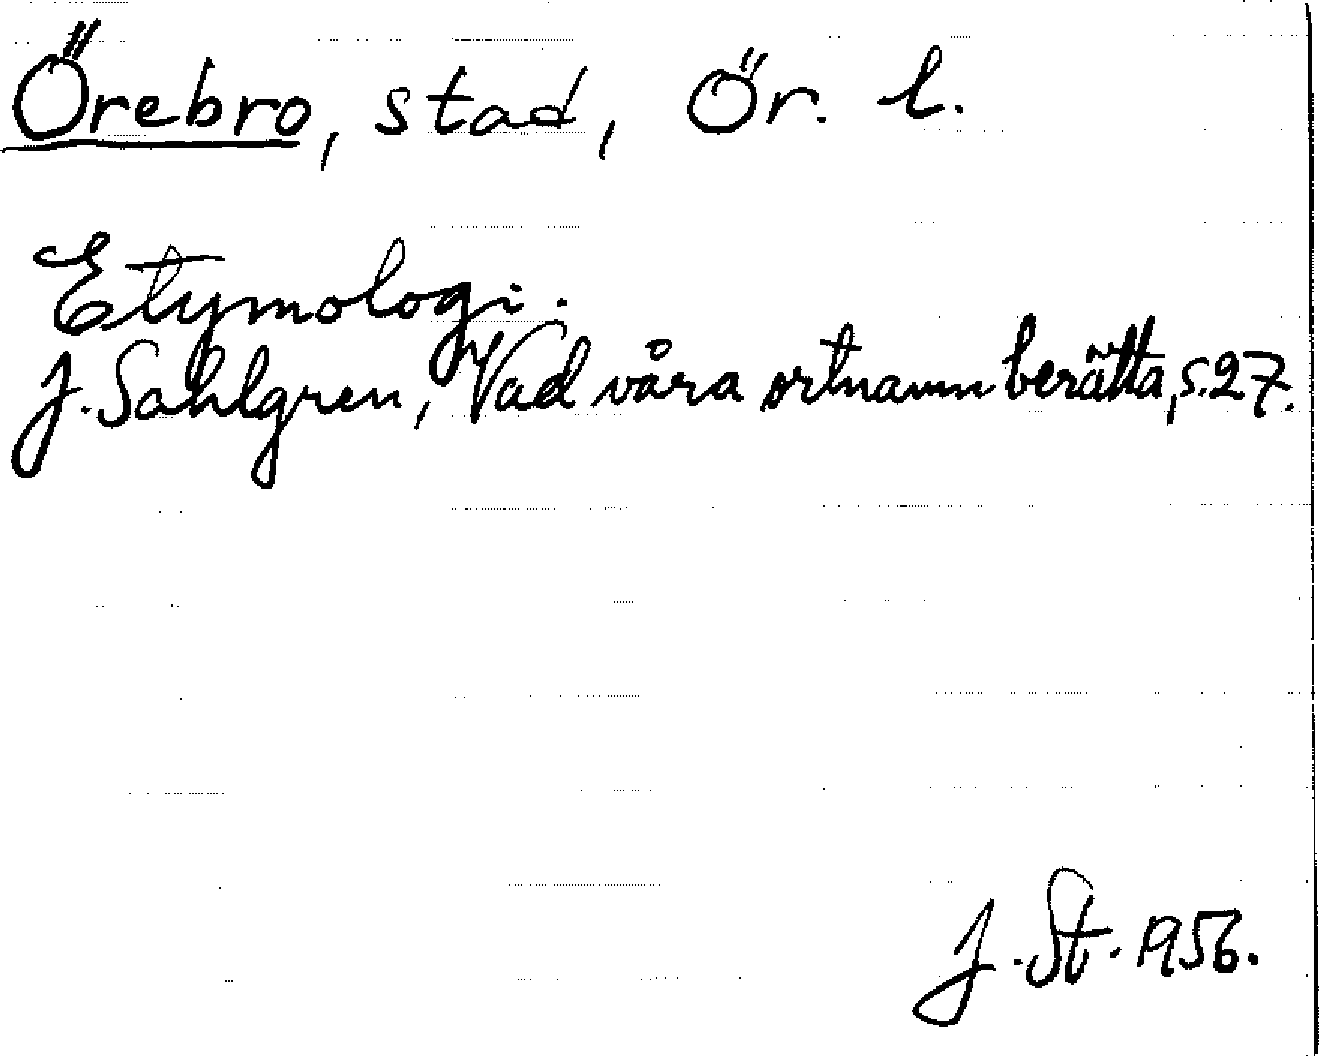 Örebro, stad, Ör. l.
Etymologi.
J. Sahlgren, Vad våra ortnamn berätta, s. 27.
J. St. 1956.